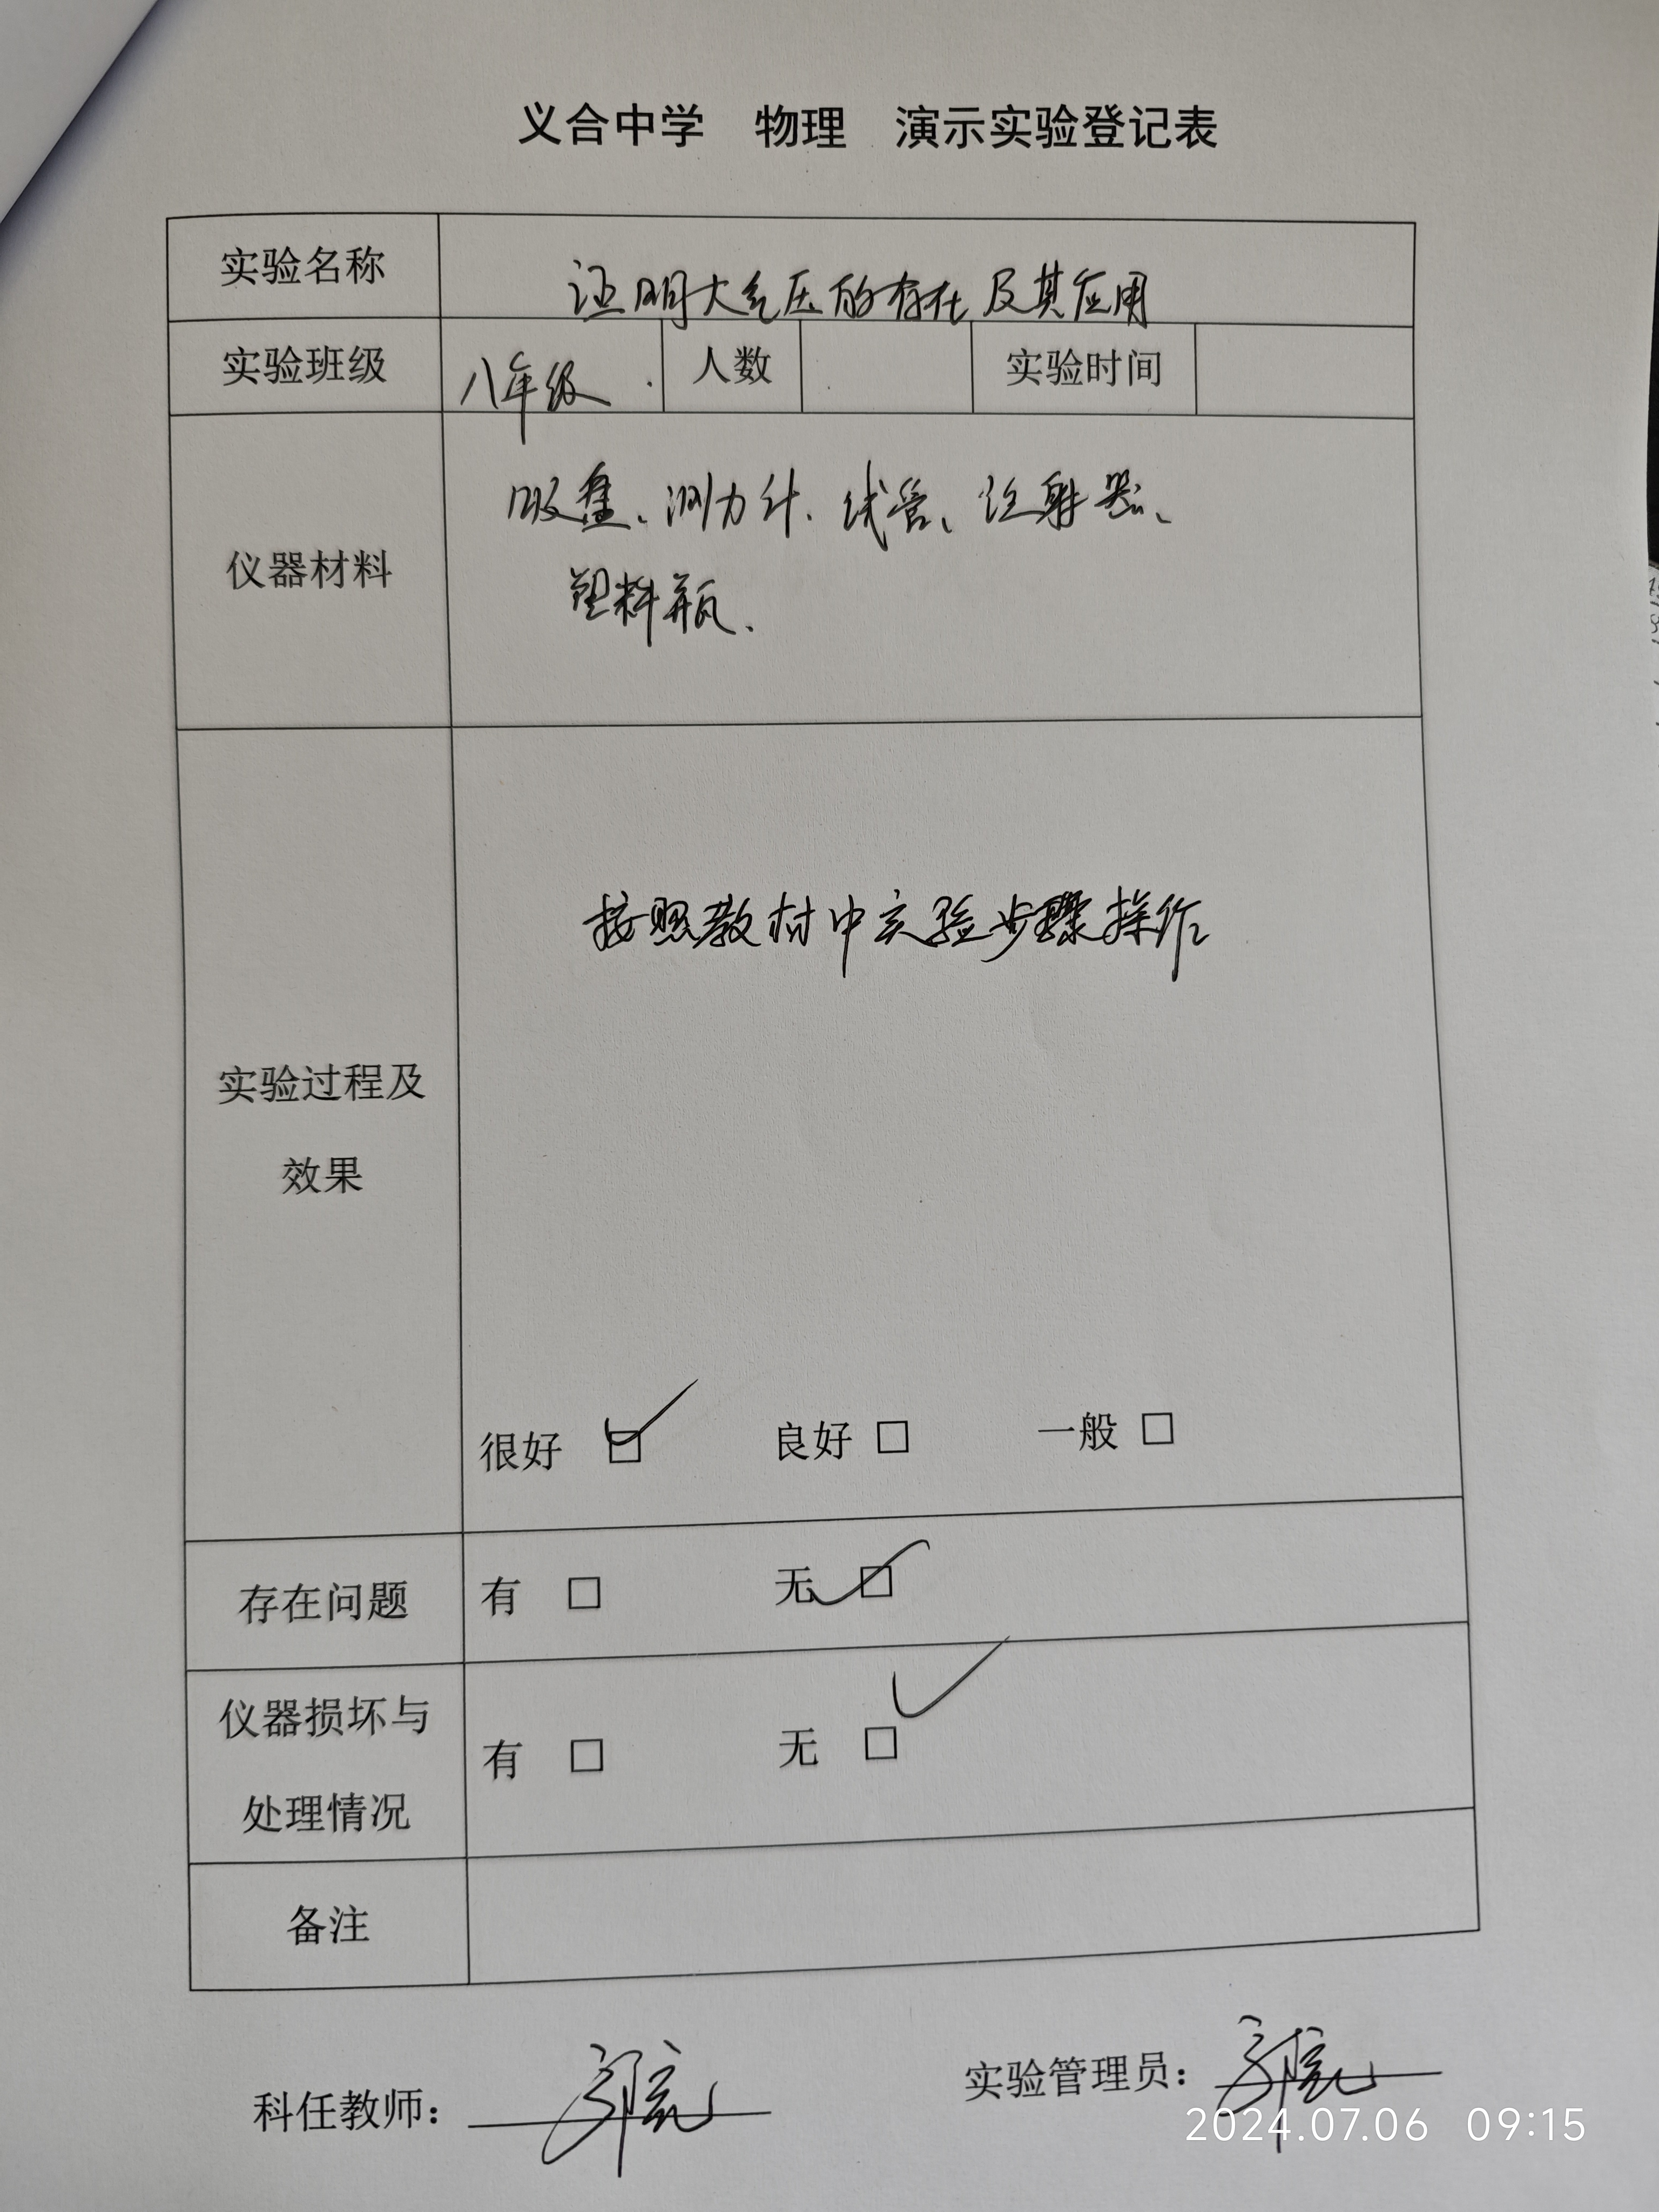 义合中学 物理 演示实验登记表
实验名称 证明大气压的存在及其应用
实验班级 八年级 人数 实验时间
仪器材料
吸盘、测力计、线管、注射器、
塑料瓶.
实验过程及
效果
按照教材中实验步骤操作
很好 ☑ 良好 □ 一般 □
存在问题 有 □ 无 ☑
仪器损坏与
处理情况
有 □ 无 ☑
备注
科任教师：
实验管理员：
2024.07.06 09:15